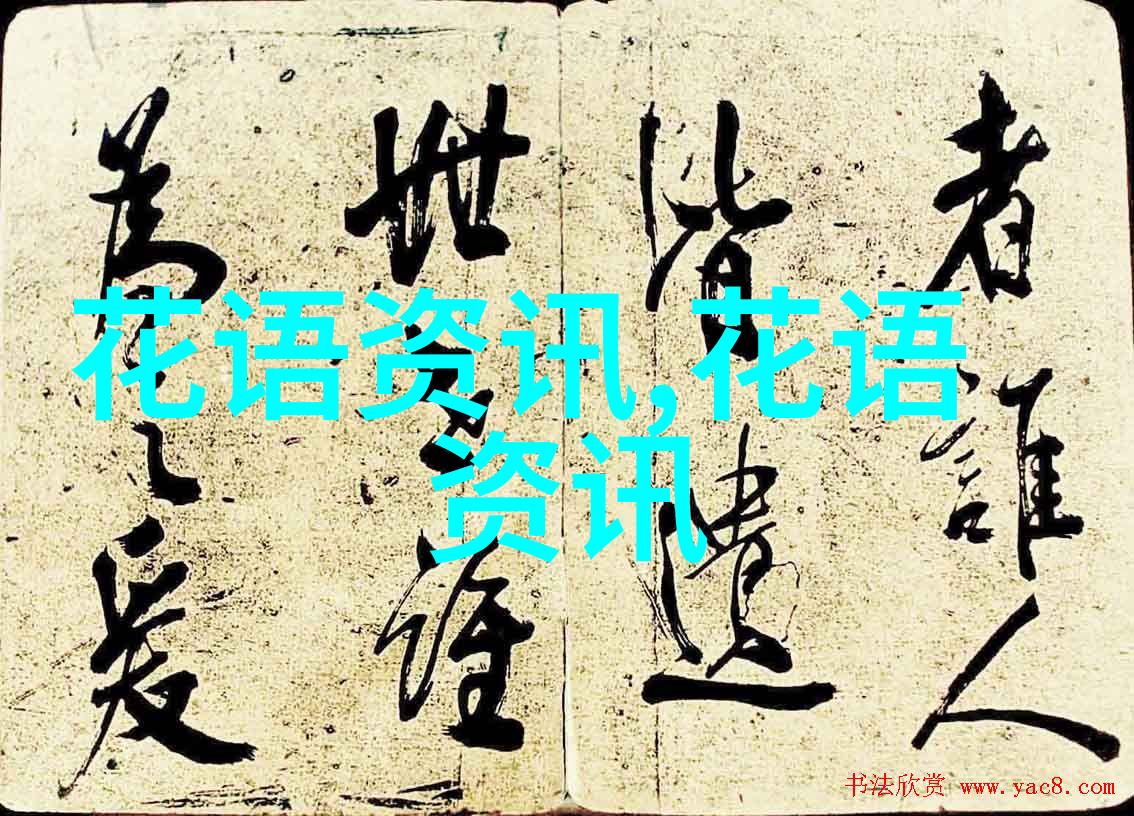 者誰人
皆遺
世誰
爲
花语资讯,花语
资讯
书法欣赏 www.yac8.com